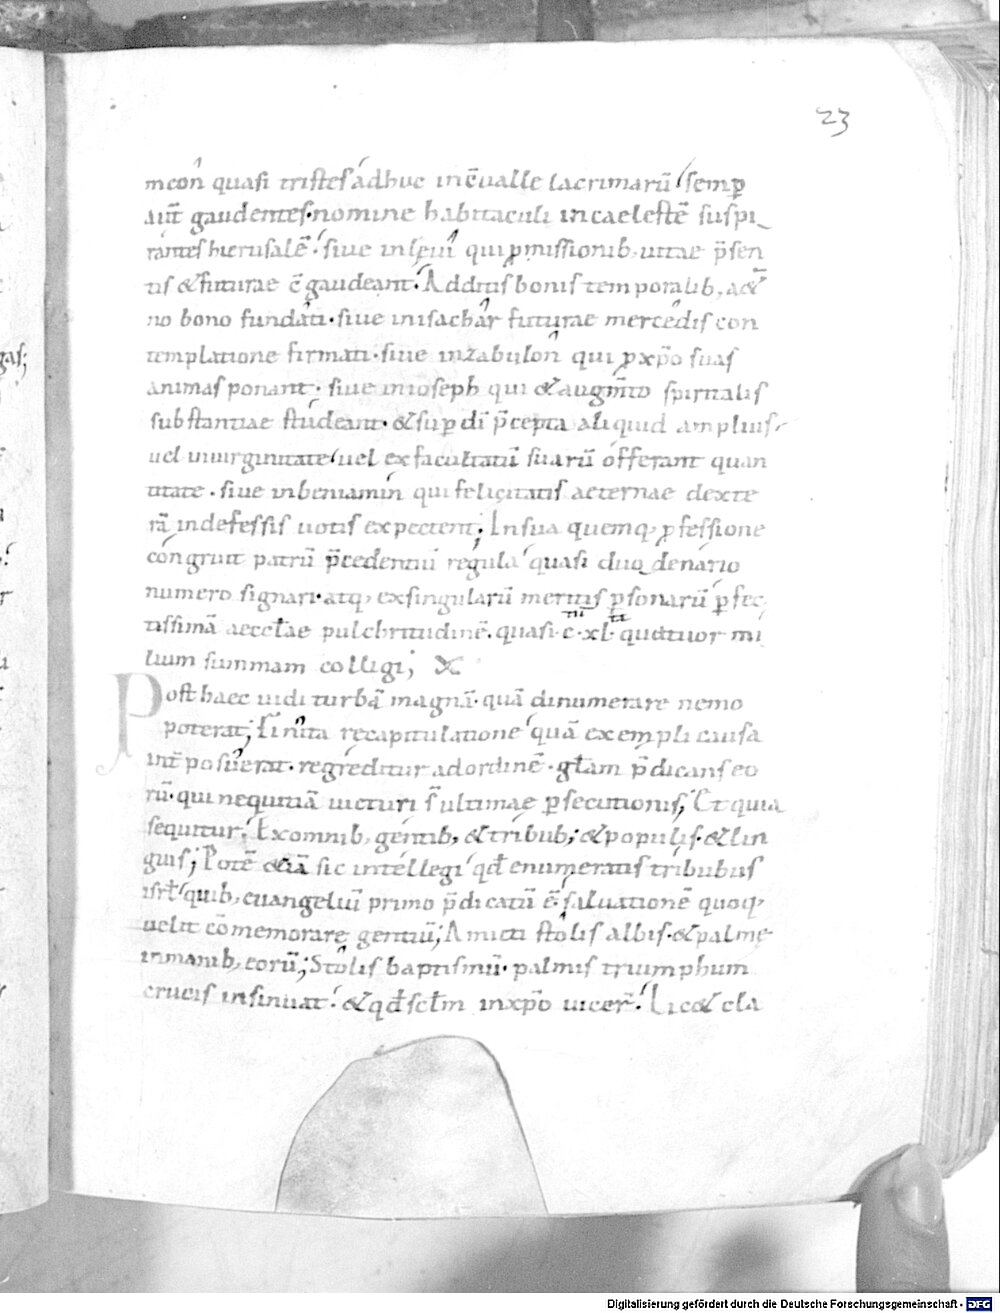 23
meon̄ quasi tristes adhuc in c̄ualle lacrimarū semp̄
aut̄ gaudentes· nomine habitaculi in caelestē suspi
rantes hierusalē· siue in leui qui p̱missionib, uitae p̄sen
tis & futurae c̄gaudeant· Additis bonis temporalib, aet̄
no bono fundati· siue in isachar futurae mercedis con
templatione firmati· siue in zabulon qui p̱ xp̄o suas
animas ponant· siue in ioseph qui & augm̄to spiritalis
substantiae studeant· & sup̱ di p̄cepta aliquid amplius
uel in uirginitate uel ex facultatū suarū offerant quan
titate· siue in beniamin qui felicitatis aeternae dexte
rā indefessis uotis expectent; In sua quemq, p̱fessione
congruit patrū p̄cedentiū regula quasi duodenario
numero signari· atq, ex singularū meritis p̱sonarū p̱fec
tissimā aeccl̄ae pulchritudinē· quasi· c̄·xl· quattuor mi
lium summam colligi;
Post haec uidi turbā magnā· quā dinumerare nemo
poterat; Finita recapitulatione quā exempli causa
int̄posuerat· regreditur ad ordinē· gl̄am p̄dicans eo
rū· qui nequitiā uicturi s̄ ultimae p̱secutionis; Et quia
sequitur· Ex omnib, gentib, & tribub; & populis· & lin
guis; Potē etiā sic intellegi qd̄ enumeratis tribubus
isrl̄ quib, euangeliū primo p̄dicatū ē· saluationē quoq,
uelit cōmemorare gentiū; Amicti stolis albis· & palme
in manib, eorū; Stolis baptismū· palmis triumphum
crucis insinuat· & qd̄ scl̄m in xp̄o uicer̄· Licet cla
gas;
Digitalisierung gefördert durch die Deutsche Forschungsgemeinschaft - DFG